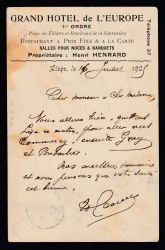 GRAND HOTEL de L'EUROPE
1er ORDRE
Place du Théâtre et Boulevard de la Sauvenière
RESTAURANT à PRIX FIXE & à LA CARTE
SALLES POUR NOCES & BANQUETS
Propriétaire : Henri HENRARD
Téléphone 37
Liége, le 14 Juillet 1905
Cher monsieur &
Nous allons bien, quittons
Liège ce matin, pour aller voir
ensuite Gray
et Pontarlier
Nos meilleurs souvenirs
et nous pensons que votre santé
est bonne